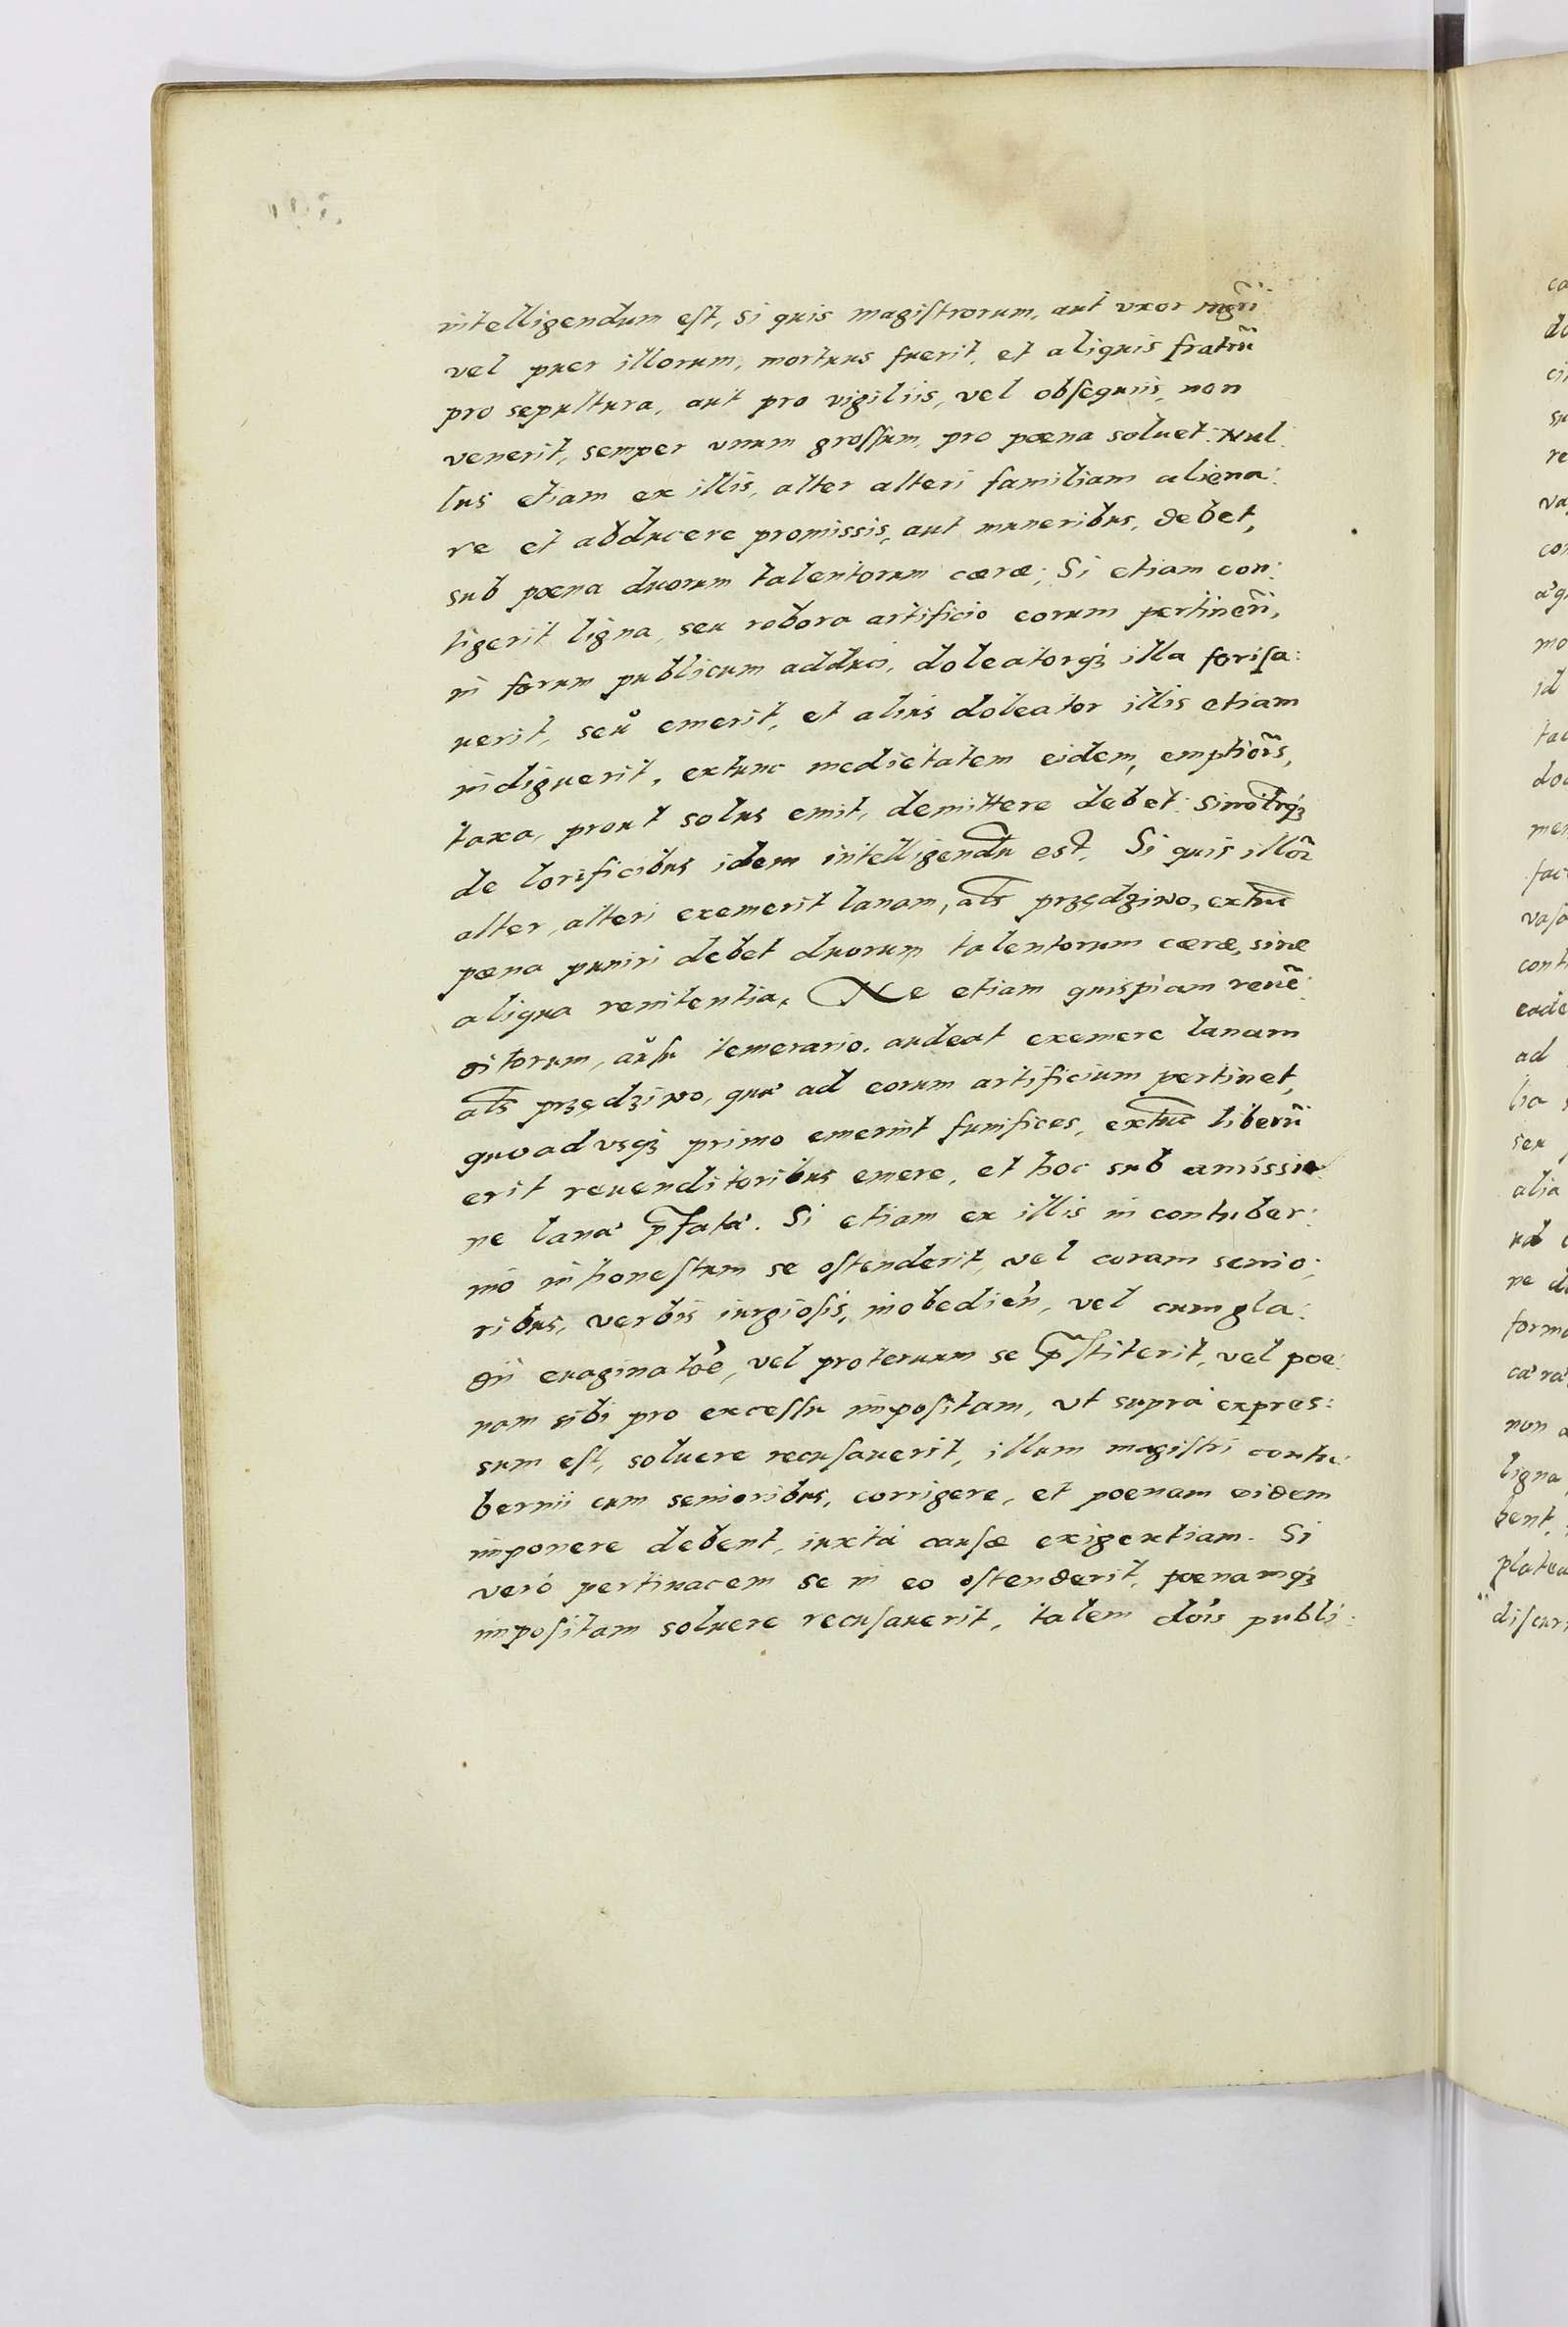 intelligendum eſt, Si quis magiſtrorum, aut vxor mgr̃i
vel puer illorum, mortuus fuerit, et aliquis fratrũ
pro sepultura, aut pro vigiliis, vel obſequiis, non
venerit, semper vnum groſſum, pro pœna soluet. Nul:
lus etiam ex illis, alter alteri familiam aliena:
re et abducere promissis, aut muneribus, debet,
sub pœna duorum talentorum cæræ; Si etiam con:
tigerit ligna, seu robora artificio eorum pertineñ,
in forum publicum adduci, doleatorqꝫ illa foriſa:
uerit, seu emerit, et alius doleator illis etiam
indiguerit, extunc medietatem eidem, emptiõis,
taxa, prout solus emit, demittere debet.
de lorificibus idem intelligendũ est. Si quis illoꝝ
alter, alteri exemerit lanam, als przędziwo, extũc
pæna puniri debet duorum talentorum cæræ, sine
aliqua renitentia. Ne etiam quispiam reuẽ:
ditorum, auſu temerario, audeat exemere lanam
als przędziwo, quæ ad eorum artificium pertinet,
quoadvsqꝫ primo emerint funifices, extũc liberũ
erit reuenditoribus emere, et hoc sub amissio:
ne lanæ p̃fatæ. Si etiam ex illis in contuber:
nio inhoneſtum se oſtenderit, vel coram senio:
ribus, verbis iurgioſis, inobedień, vel cum gla:
dii euaginatõe, vel proteruum se p̃ſtiterit, vel poe:
nam sibi pro exceſſu impoſitam, vt suprà expres:
sum eſt, soluere recuſauerit, illum magiſtri contu:
bernii cum senioribus, corrigere, et poenam eidem
imponere debent, iuxtà cauſæ exigentiam. Si
verò pertinacem se in eo oſtenderit, pœnamqꝫ
impoſitam soluere recuſauerit, talem dõis publi: